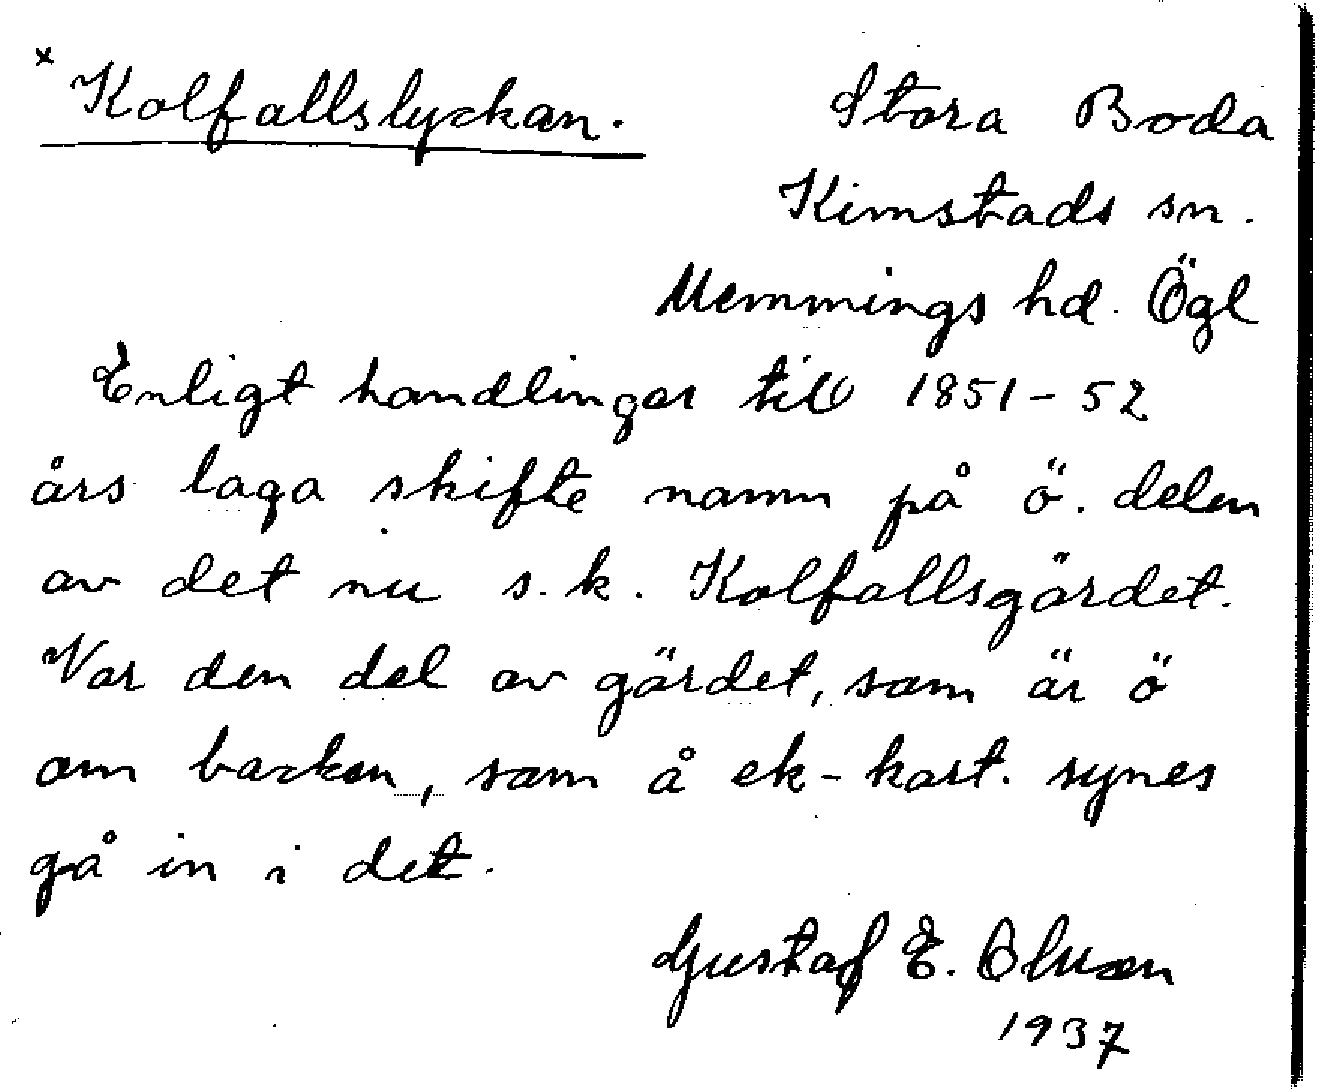 × Kolfallslyckan. Stora Boda
Kimstads sn.
Memmings hd. Ögl
Enligt handlingar till 1851-52
års laga skifte namn på ö. delen
av det nu s.k. Kolfallsgärdet.
Var den del av gärdet, som är ö
om backen, som å ek-kart. synes
gå in i det.
Gustaf E. Olsson
1937